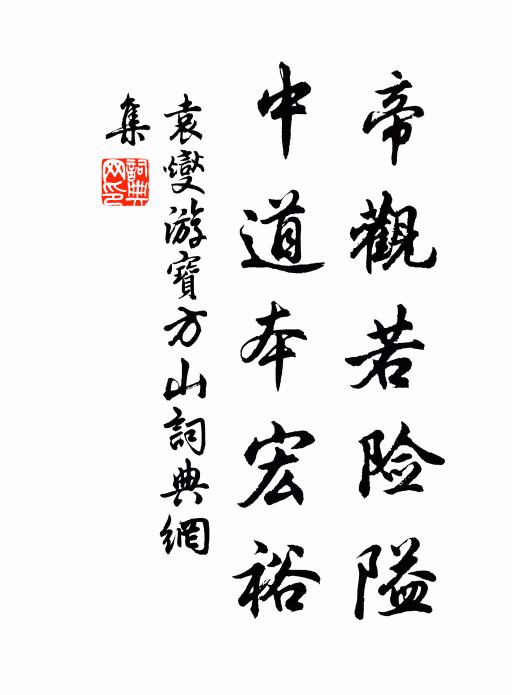 帝觀若险隘
中道本宏裕
袁燮游寶方山詞典網
集
詞典網印